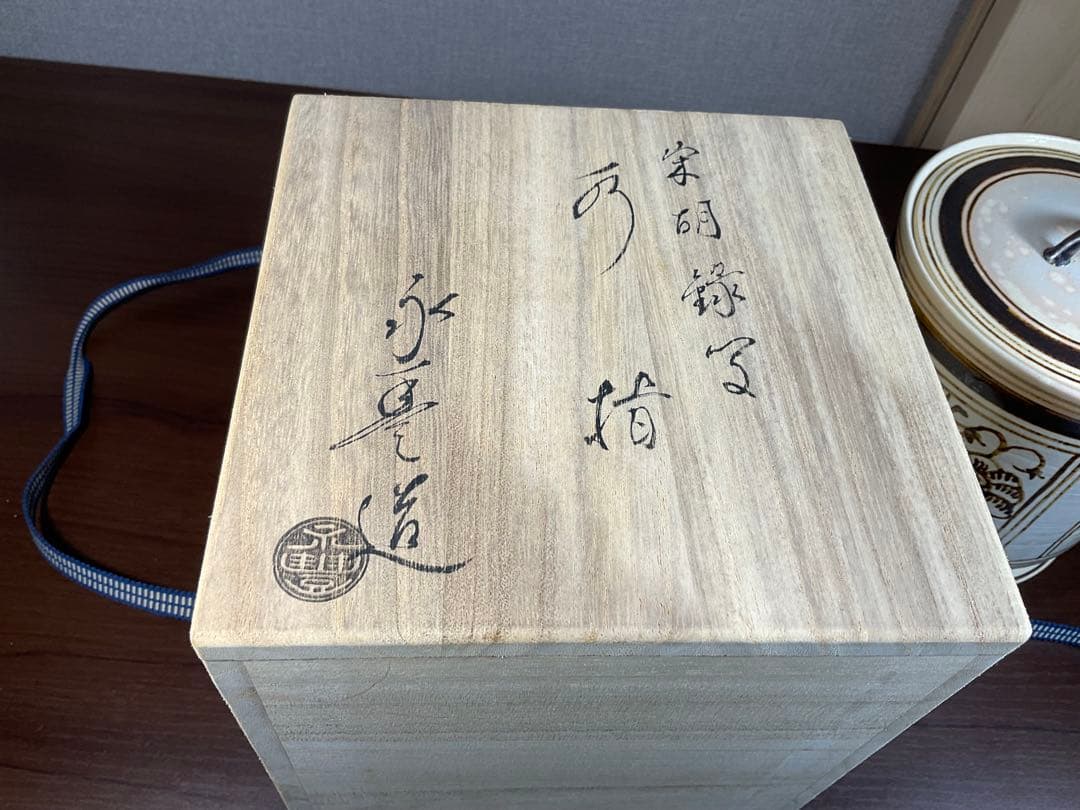 宋胡録写
水指
永 造